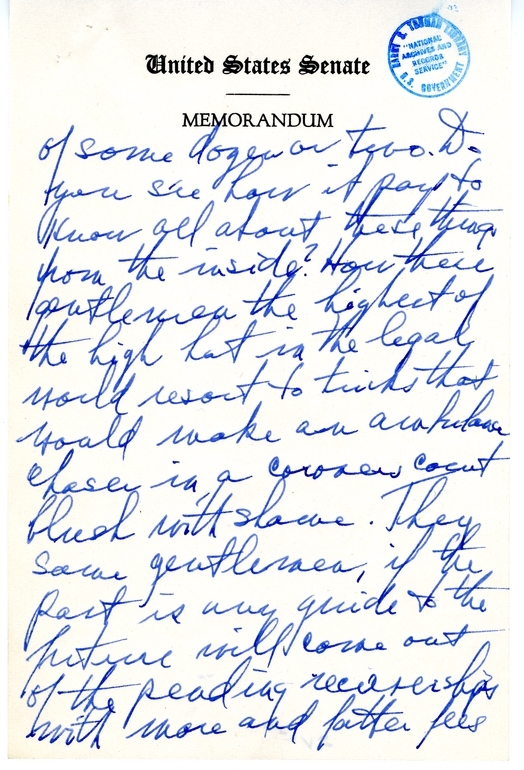 HARRY S. TRUMAN LIBRARY
"NATIONAL
ARCHIVES AND
RECORDS
SERVICE"
U.S. GOVERNMENT
United States Senate
MEMORANDUM
of some dozen or two. Do
you see how it pays to
know all about these things
from the inside? How these
gentlemen the highest of
the high hat in the legal
world resort to tricks that
would make an ambulance
chaser in a coroners court
blush with shame. They
same gentlemen, if the
past is any guide to the
future will come out
of the pending receiverships
with more and fatter fees